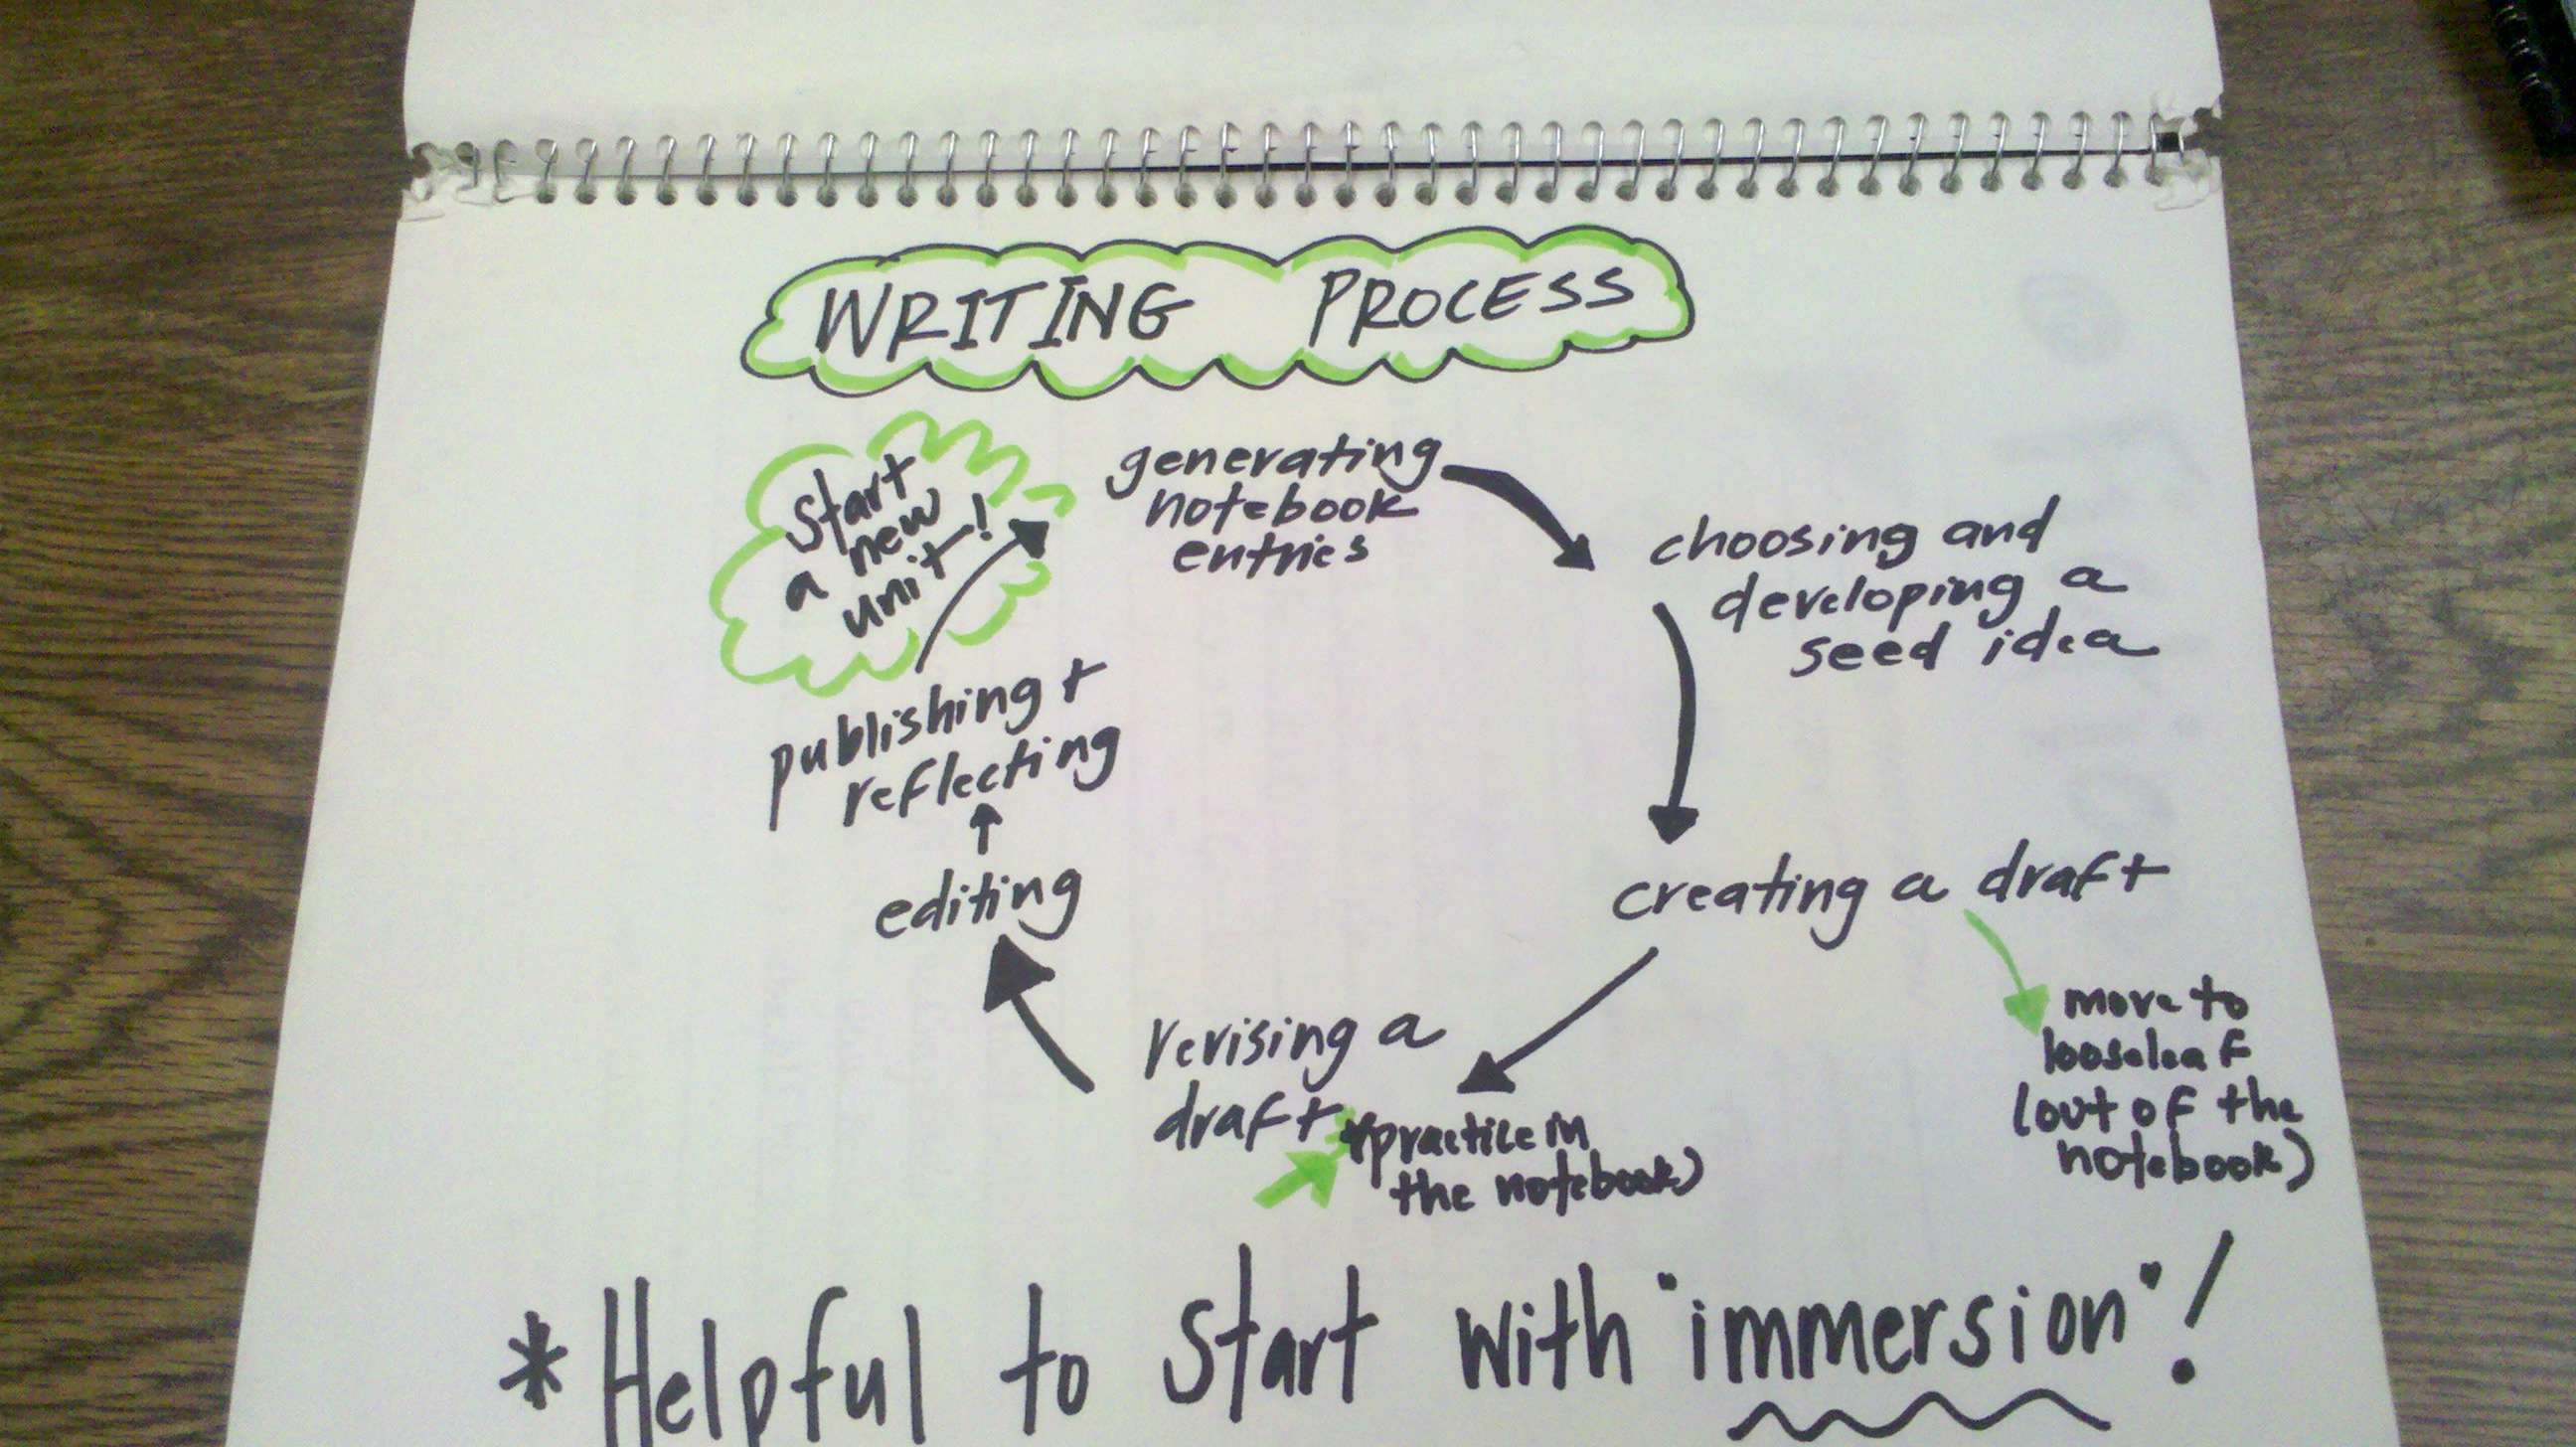 WRITING PROCESS
start
a new
unit!
generating
notebook
entries
choosing and
developing a
seed idea
creating a draft
move to
looseleaf
(out of the
notebook)
revising a
draft
(practice in
the notebook)
editing
publishing +
reflecting
*Helpful to start with "immersion"!